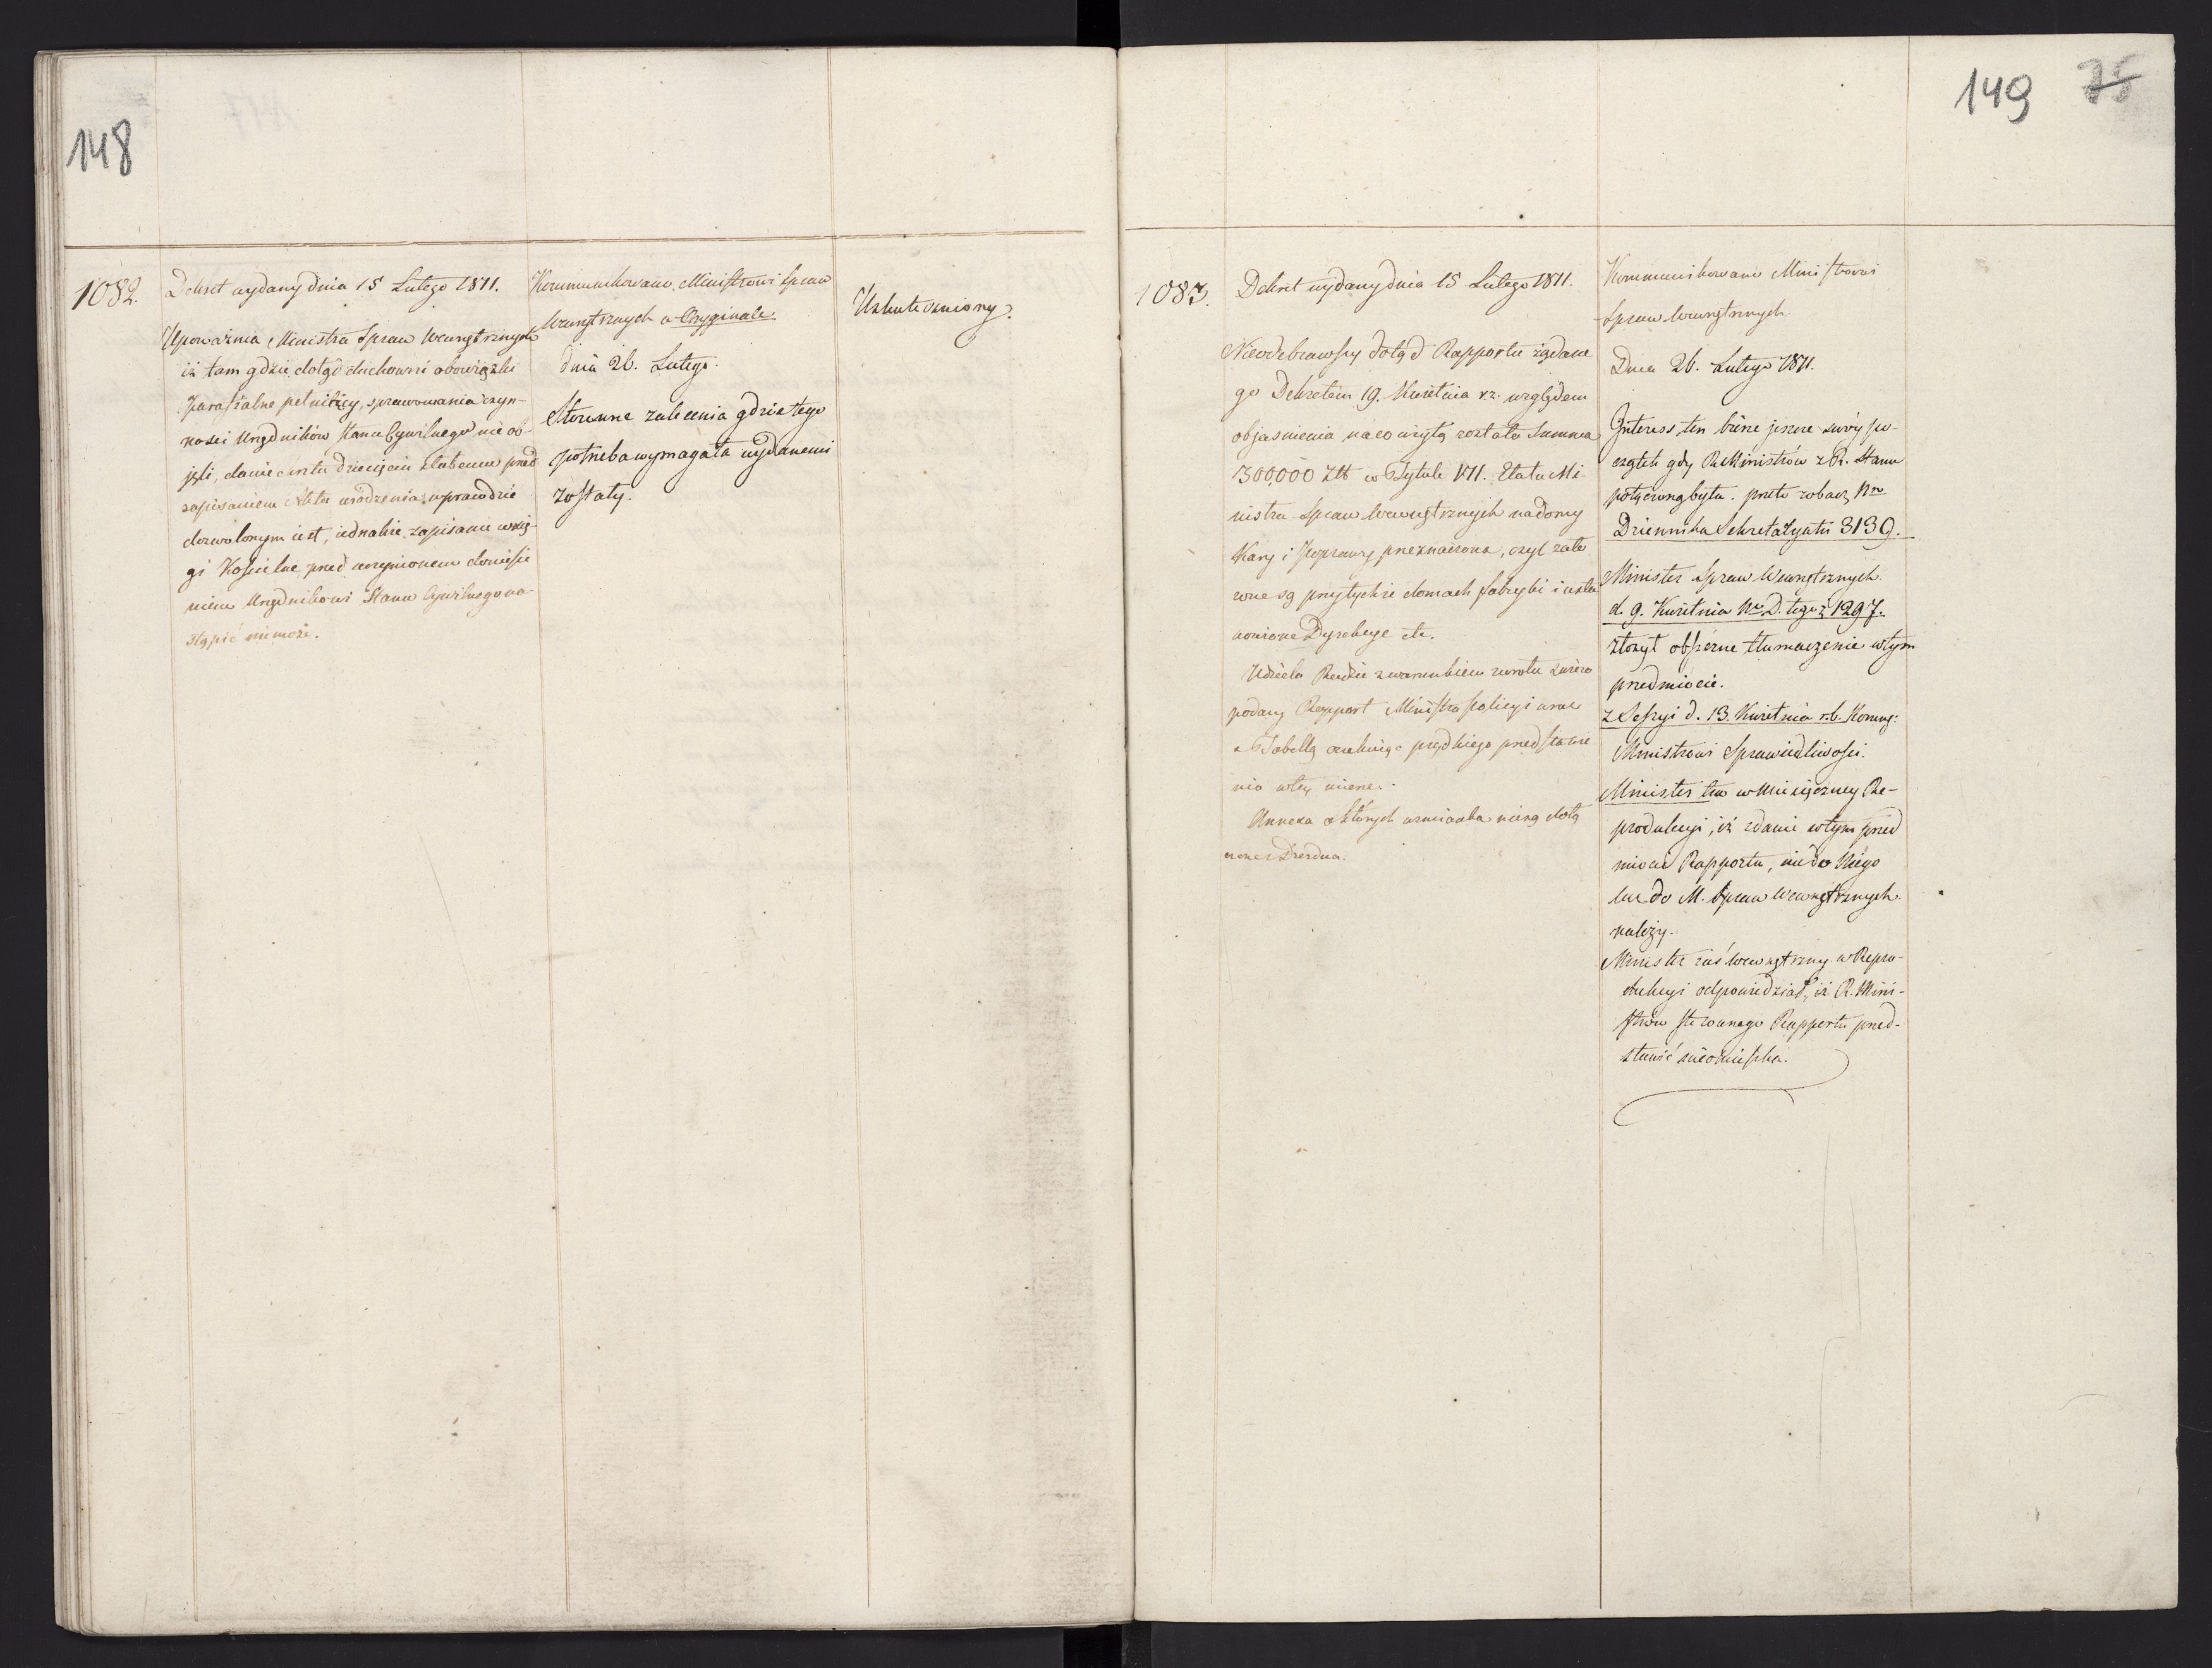 148
1082.
Dekret wydany dnia 15 Lutego 1811.
Upoważnia Ministra Spraw Wewnętrznych
iż tam gdzie dotąd duchowni obowiązki
parafialne pełniący, sprawowania czyn-
ności Urzędników Stanu Cywilnego nie ob-
jęli, danie chrztu dziecięciu słabemu przed
zapisaniem Aktu urodzenia wprawdzie
dozwolonym iest, iednakże zapisanie w xię-
gi Kościelne przed uczynionem doniesie
niem Urzędnikowi Stanu Cywilnego na-
stąpić niemoże.
Kommunikowano Ministrowi Spraw
Wewnętrznych w Oryginale
dnia 26. Lutego.
Stosowne zalecenia gdzie tego
potrzeba wymagała wydanemi
zostały.
Uskuteczniony.
149 75
1083.
Dekret wydany dnia 15 Lutego 1811.
Nieodebrawszy dotąd Rapportu żądane
go Dekretem 19. Kwietnia r.z. względem
objasnienia na co użytą została Summa
300,000 Złł w Tytule VII. Etatu Mi-
nistra Spraw Wewnętrznych na domy
Kary i Poprawy przeznaczona, czyl zało
żone są przy tychże domach fabryki i usta
nowione Dyrekcye etc.
Udziela Radzie z warunkiem zwrotu świeżo
podany Rapport Ministra Policyi wraz
z Tabellą oczekuiąc prędkiego przedstawie
nia w tey mierze.
Annexa o których wzmianka nie są dołą
czone z Drezna.
Kommunikowano Ministrowi
Spraw Wewnętrznych
Dnia 26. Lutego 1811.
Interess ten bierze jeszcze swóy po-
czątek gdy R. Ministrów z R. Stanu
połączoną była. przeto zobacz Nro
Dziennika Sekretaryatu 3139.
Minister Spraw Wewnętrznych
d. 9. Kwietnia Nro D. tegoż 1297.
złożył obszerne tłumaczenie w tym
przedmiocie.
z Sessyi d. 13. Kwietnia r.b. Komung:
Ministrowi Sprawiedliwości.
Minister ten w Miesięczney Re-
produkcyi, iż zdanie w tym przed
miocie Rapportu, nie do Niego
lecz do M. Spraw Wewnętrznych
należy.
Minister zaś Wewnętrzny w Repro-
dukcyi odpowiedział, iż R. Mini-
strów stosownego Rapportu przed-
stawić nieomieszka.